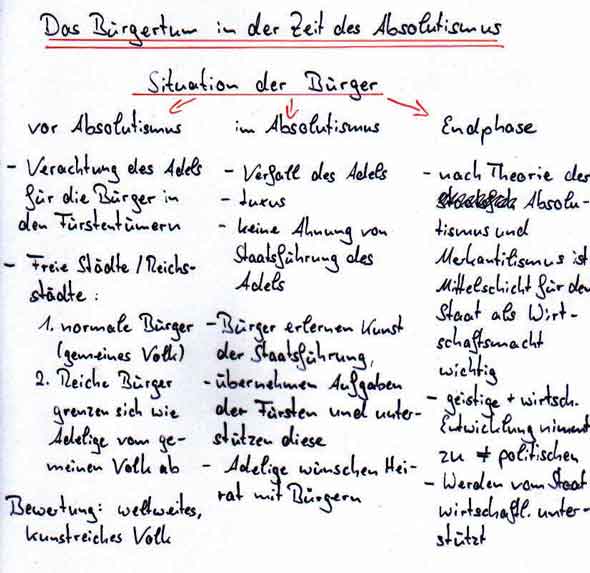 Das Bürgertum in der Zeit des Absolutismus
Situation der Bürger
vor Absolutismus
- Verachtung des Adels
für die Bürger in
den Fürstentümern
- Freie Städte/Reichs-
städte:
1. normale Bürger
(gemeines Volk)
2. Reiche Bürger
grenzen sich wie
Adelige vom ge-
meinen Volk ab
Bewertung: weltweites,
kunstreiches Volk
im Absolutismus
- Verfall des Adels
- Luxus
- keine Ahnung von
Staatsführung des
Adels
- Bürger erlernen Kunst
der Staatsführung,
- übernehmen Aufgaben
der Fürsten und unter-
stützen diese
- Adelige wünschen Hei-
rat mit Bürgern
Endphase
- nach Theorie des
Absolu-
tismus und
Merkantilismus ist
Mittelschicht für den
Staat als Wirt-
schaftsmacht
wichtig
- geistige + wirtsch.
Entwicklung nimmt
zu ≠ politischen
- Werden vom Staat
wirtschaftl. unter-
stützt